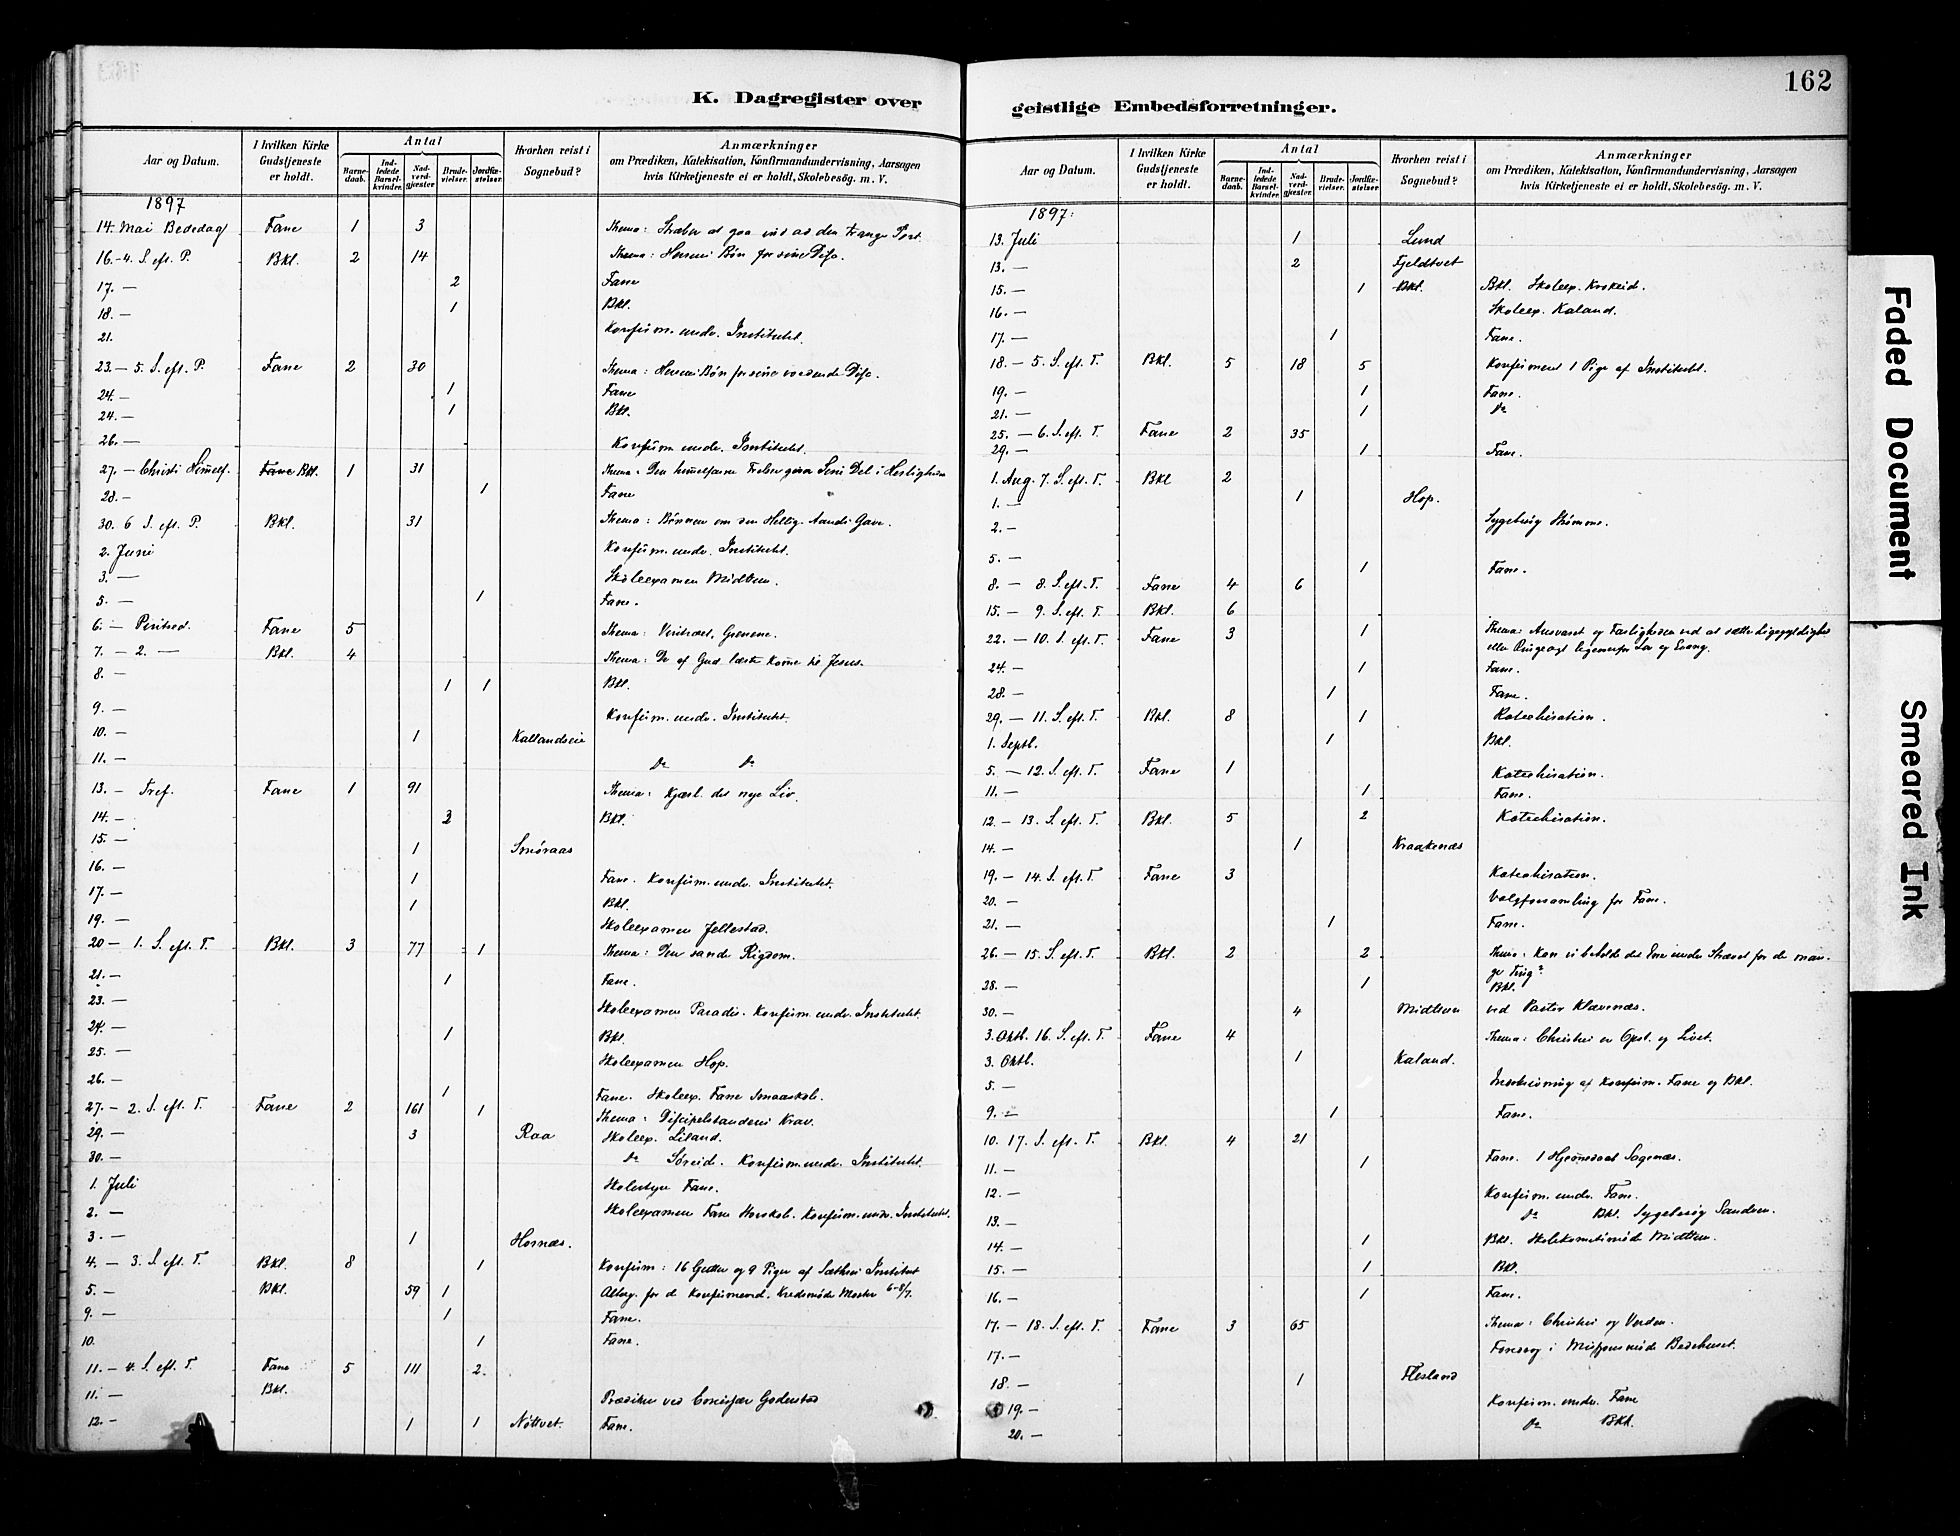 162
K. Dagregister over geistlige Embedsforretninger.
Aar og Datum. | I hvilken Kirke Gudstjeneste er holdt. | Antal | Barnedaab. | Indledede Barselkvinder. | Nadverdgjæster | Brudevielser. | Jordfæstelser. | Hvorhen reist i Sognebud? | Anmærkninger om Prædiken, Katekisation, Konfirmandundervisning, Aarsagen hvis Kirketjeneste ei er holdt, Skolebesög. m. V.
1897
14. Mai Bededag Fane 1 3 Thema: Stræber at gaa ind ad den trange Port.
16. - 4. S. eft. P. Bkl. 2 14 Thema: Herrens Bøn for sine Disc.
17. — 2 Fane
18. — 1 Bkl.
21. Konfirm. underv. Institutet.
23. — 5. S. eft. P. Fane 2 30 Thema: Herrens Bøn for sine Disc.
24. — 1 Fane
24. — 1 Bkl.
26. — Konfirm. underv. Institutet.
27. — Christi Himmelf. Bkl. 1 31 Thema: Den Frelser Del i Herligheden
28. — 1 Fane
30. 6 S. eft. P. Bkl. 31 Thema: Bønnen om den Hellig-Aands Gave.
2. Juni Konfirm. underv. Institutet.
3. — Skoleexamen Midttun.
5. — 1 Fane.
6. — Pintsed. Fane 5 Thema:
7. — 2. — Bkl. 4 Thema: De af Gud lærte komme til Jesus.
8. — 1 1 Bkl.
9. — Konfirm. underv. Institutet.
10. — 1 Kallandseie
11. — Do Do
13. — Tref. Fane 1 91 Thema: Kjærl. det nye Liv.
14. — 3 Bkl.
15. — 1 Smøraas
16. — 1 Fane. Konfirm. underv. Institutet.
17. — 1 Bkl.
19. — Skoleexamen Jellestad.
20 — 1. S. eft. T. Bkl. 3 77 1 Thema: Den sande Rigdom.
21. — 1 Fane.
23. — Skoleexamen Paradis. Konfirm. underv. Institutet.
24. — 1 Bkl.
25. — Skoleexamen Hop.
26. — 1 Fane. Skoleex. Fane Smaaskole.
27. — 2. S. eft. T. Fane 2 161 1 Thema: Discipelstandens Krav.
29. — 3 Raa Skoleex. Liland.
30. — Do Søreid. Konfirm. underv. Institutet.
1. Juli Skolestyre Fane.
2. — Skoleexamen Fane Storskole. Konfirm. underv. Institutet.
3. — 1 Hornæs.
4. — 3. S. eft. T. Bkl. 8 1 Konfirm: 16 Gutter og 9 Piger af Institut
5. — Bkl. 59 1 Alterg. for de Konfirmered. Kredsmøde 6-8/7.
9. — 1 Fane.
10. 1 Fane.
11. — 4. S. eft. T. Fane 5 111 2
11. — Bkl. Prædiken ved Godersstad
12. — 1 1 Nöttvet. Fane.
Aar og Datum. | I hvilken Kirke Gudstjeneste er holdt. | Antal | Barnedaab. | Indledede Barselkvinder. | Nadverdgjæster | Brudevielser. | Jordfæstelser | Hvorhen reist i Sognebud? | Anmærkninger om Prædiken, Katekisation, Konfirmandundervisning, Aarsagen hvis Kirketjeneste ei er holdt, Skolebesög. m. V.
1897.
13. Juli 1 Lund
13. — 2 Fjeldtvet
15. — 1 Bkl. Bkl. Skoleex. Krokeid.
16. — Skoleex. Kaland.
17. — 1 Fane.
18 — 5. S. eft. T. Bkl. 5 18 5 Konfirmeret 1 Pige af Institutet.
19. — 1 Fane.
21. — 1 Do
25. — 6. S. eft. T. Fane 2 35
29. — 1 Fane.
1. Aug. 7. S. eft. T. Bkl 2
1. — 1 Hop.
2. — Sygebesøg Strømme.
5. — 1 Fane.
8. — 8. S. eft. T. Fane 4 6
15. — 9. S. eft. T. Bkl. 6
22. — 10. S. eft. T. Fane 3 1 Thema: Ansvaret og Farligheden ved at sætte Ligegyldighed
eller Ringeagt ligeoverfor Lov og Evang.
24. — 1 Fane.
28. — 1 Fane.
29. — 11. S. eft. T. Bkl. 8 1 Katechisation.
1. Septb. 1 Bkl.
5. — 12. S. eft. T. Fane 1 Katechisation.
11. — 1 Fane.
12 — 13. S. eft. T. Bkl. 5 2 Katechisation.
14. — 1 Kraakenæs
19. — 14. S. eft. T. Fane 3 Katechisation.
20. — Valgforsamling for Fane.
21. — 1 Fane.
26. — 15. S. eft. T. Bkl. 2 2 Thema: Kan vi beholde det Ene under Strævet for de man-
ge Ting?
28. — 1 Bkl.
30. — 4 Midttun ved Pastor Klævenæs.
3. Oktb. 16. S. eft. T. Fane 4 Thema: Christus er Opst. og Livet.
3. Oktb. 1 Kaland.
5. — Indskrivning af Konfirm. Fane og Bkl.
9. — 1 Fane.
10. 17. S. eft. T. Bkl. 4 21
11. — 1 Fane. 1 Hjemmedaab
12. — Konfirm. underv. Fane.
13. — Do Bkl. Sygebesøg Sandven.
14. — 1 Bkl. Midttun.
15. — 1 Bkl.
16. — 1 Fane.
17. — 18. S. eft. T. Fane 3 65 Thema: Christus og Verden.
17. — Foredrag i Missionsmøde Bedehuset.
18. — 1 Flesland
19. — Konfirm. underv. Fane
20. — Do Bkl.
Faded Document
Smeared Ink